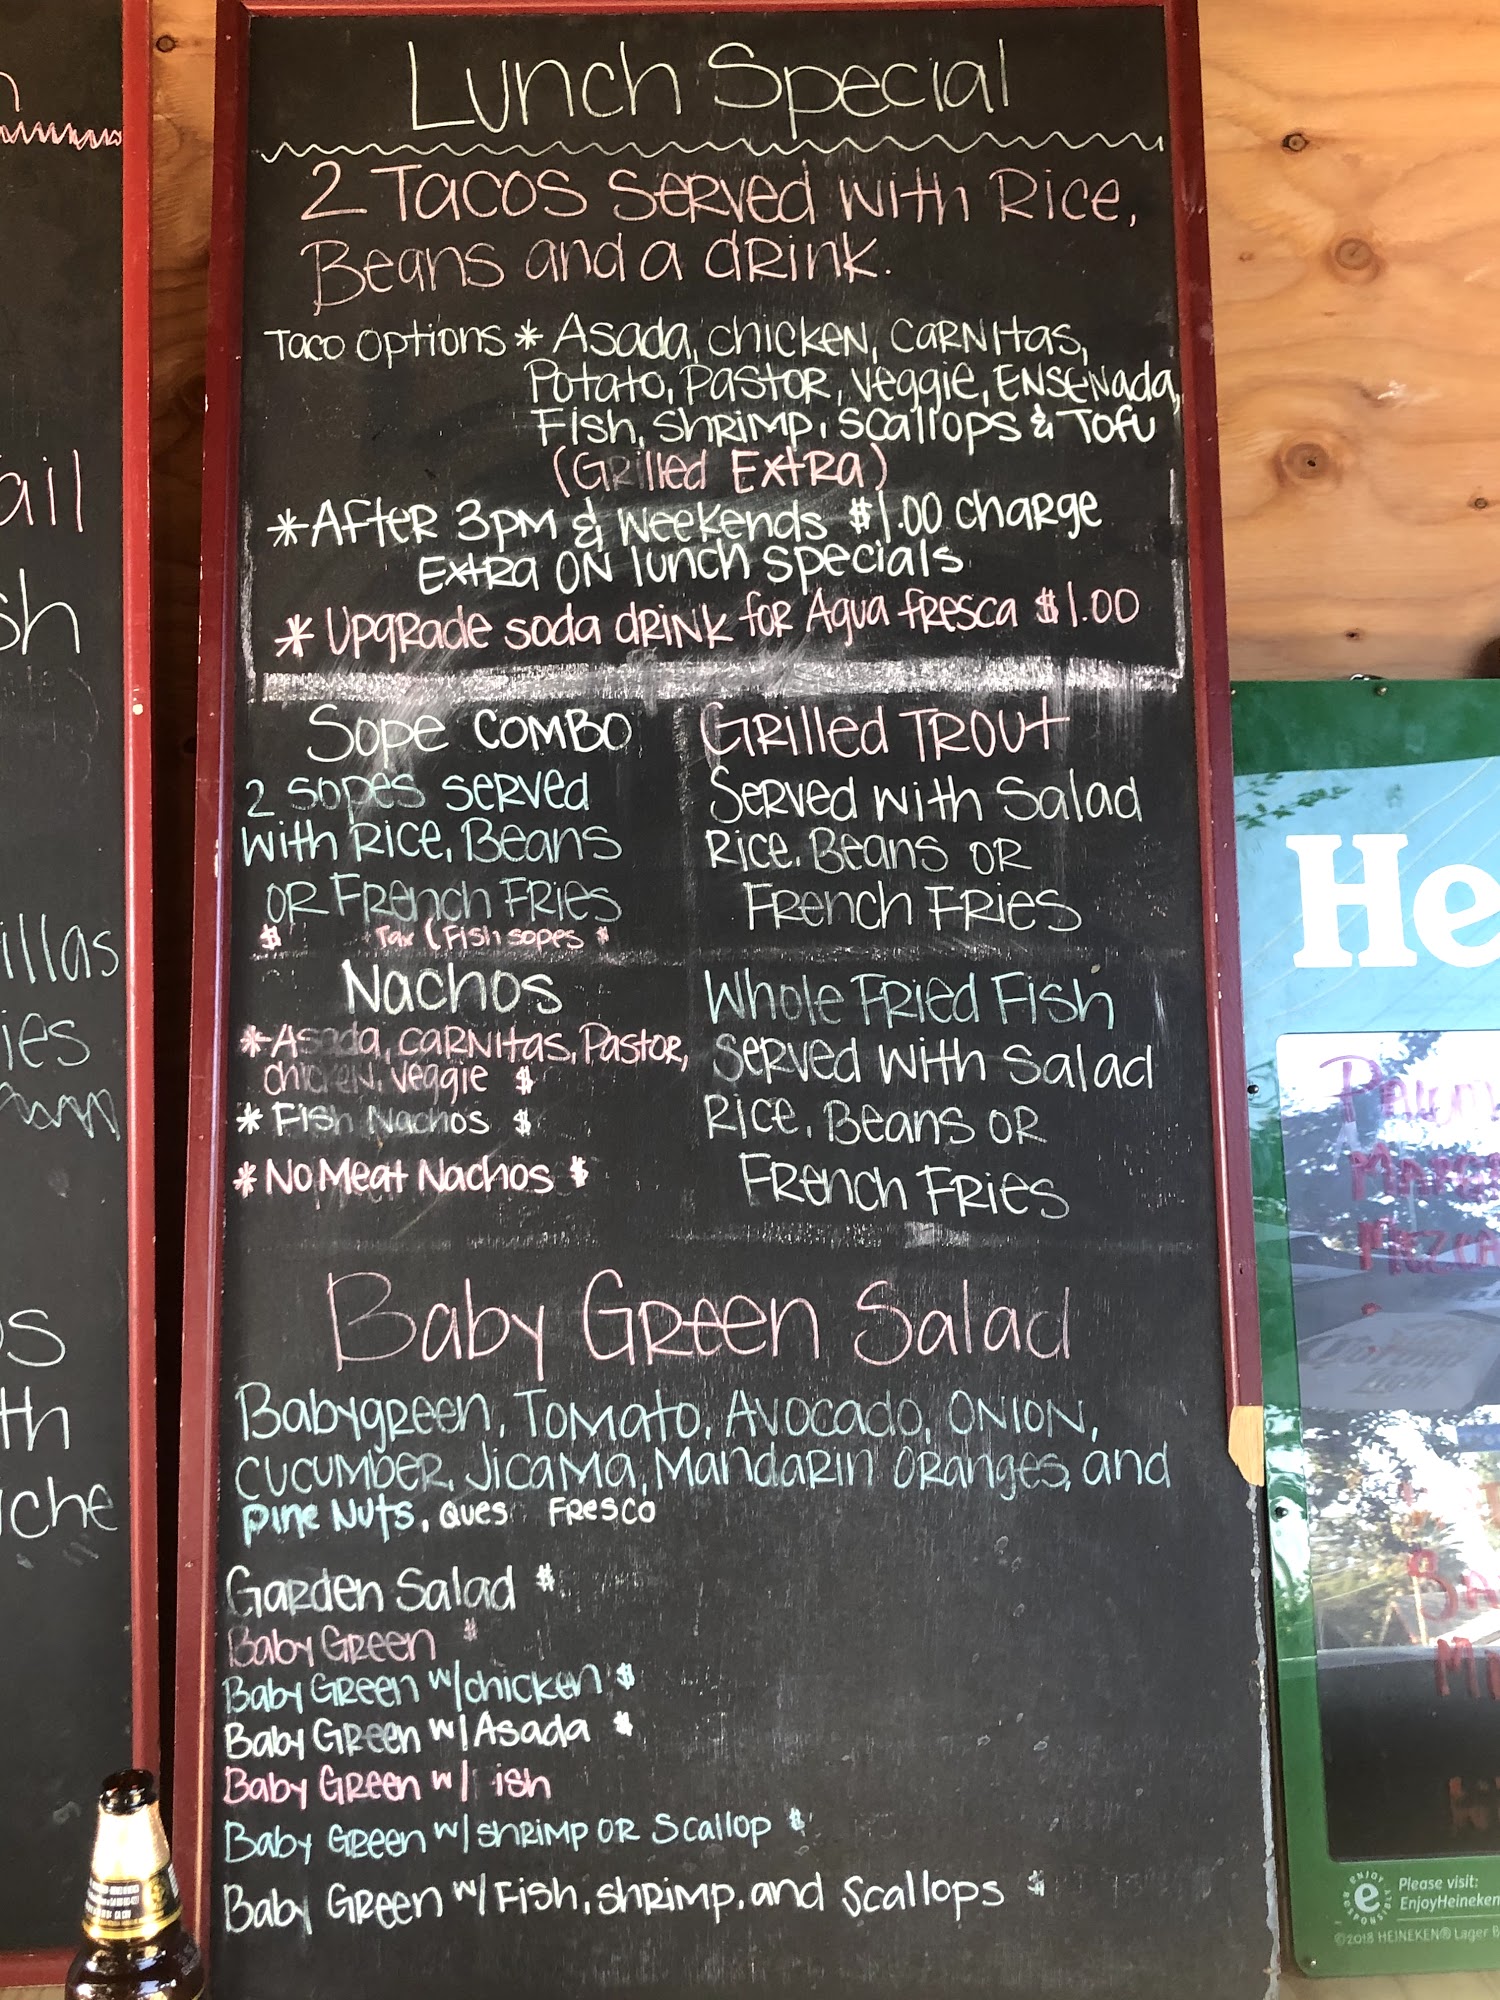 Lunch Special
2 Tacos served with Rice,
Beans and a drink.
Taco options * Asada, chicken, carnitas,
Potato, Pastor, Veggie, Ensenada,
Fish, shrimp, scallops & Tofu
(Grilled Extra)
*After 3pm & Weekends $1.00 charge
Extra on lunch specials
*Upgrade soda drink for Agua fresca $1.00
Sope Combo
2 sopes served
with Rice, Beans
or French Fries
$ + Tax (Fish sopes $
Nachos
*Asada, carnitas, Pastor,
chicken, veggie $
* Fish Nachos $
* No Meat Nachos $
Grilled Trout
Served with Salad
Rice, Beans or
French Fries
Whole Fried Fish
served with salad
Rice, Beans or
French Fries
Baby Green Salad
Babygreen, Tomato, Avocado, Onion,
cucumber, Jicama, Mandarin oranges, and
pine Nuts, Ques Fresco
Garden Salad $
Baby Green $
Baby Green w/chicken $
Baby Green w/Asada $
Baby Green w/ ish
Baby Green w/shrimp or Scallop $
Baby Green w/Fish, shrimp, and Scallops $
ail
sh
illas
ies
os
th
iche
He
Mezca
ENJOY
RESPONSIBLY
Please visit:
EnjoyHeineken
©2018 HEINEKEN® Lager B